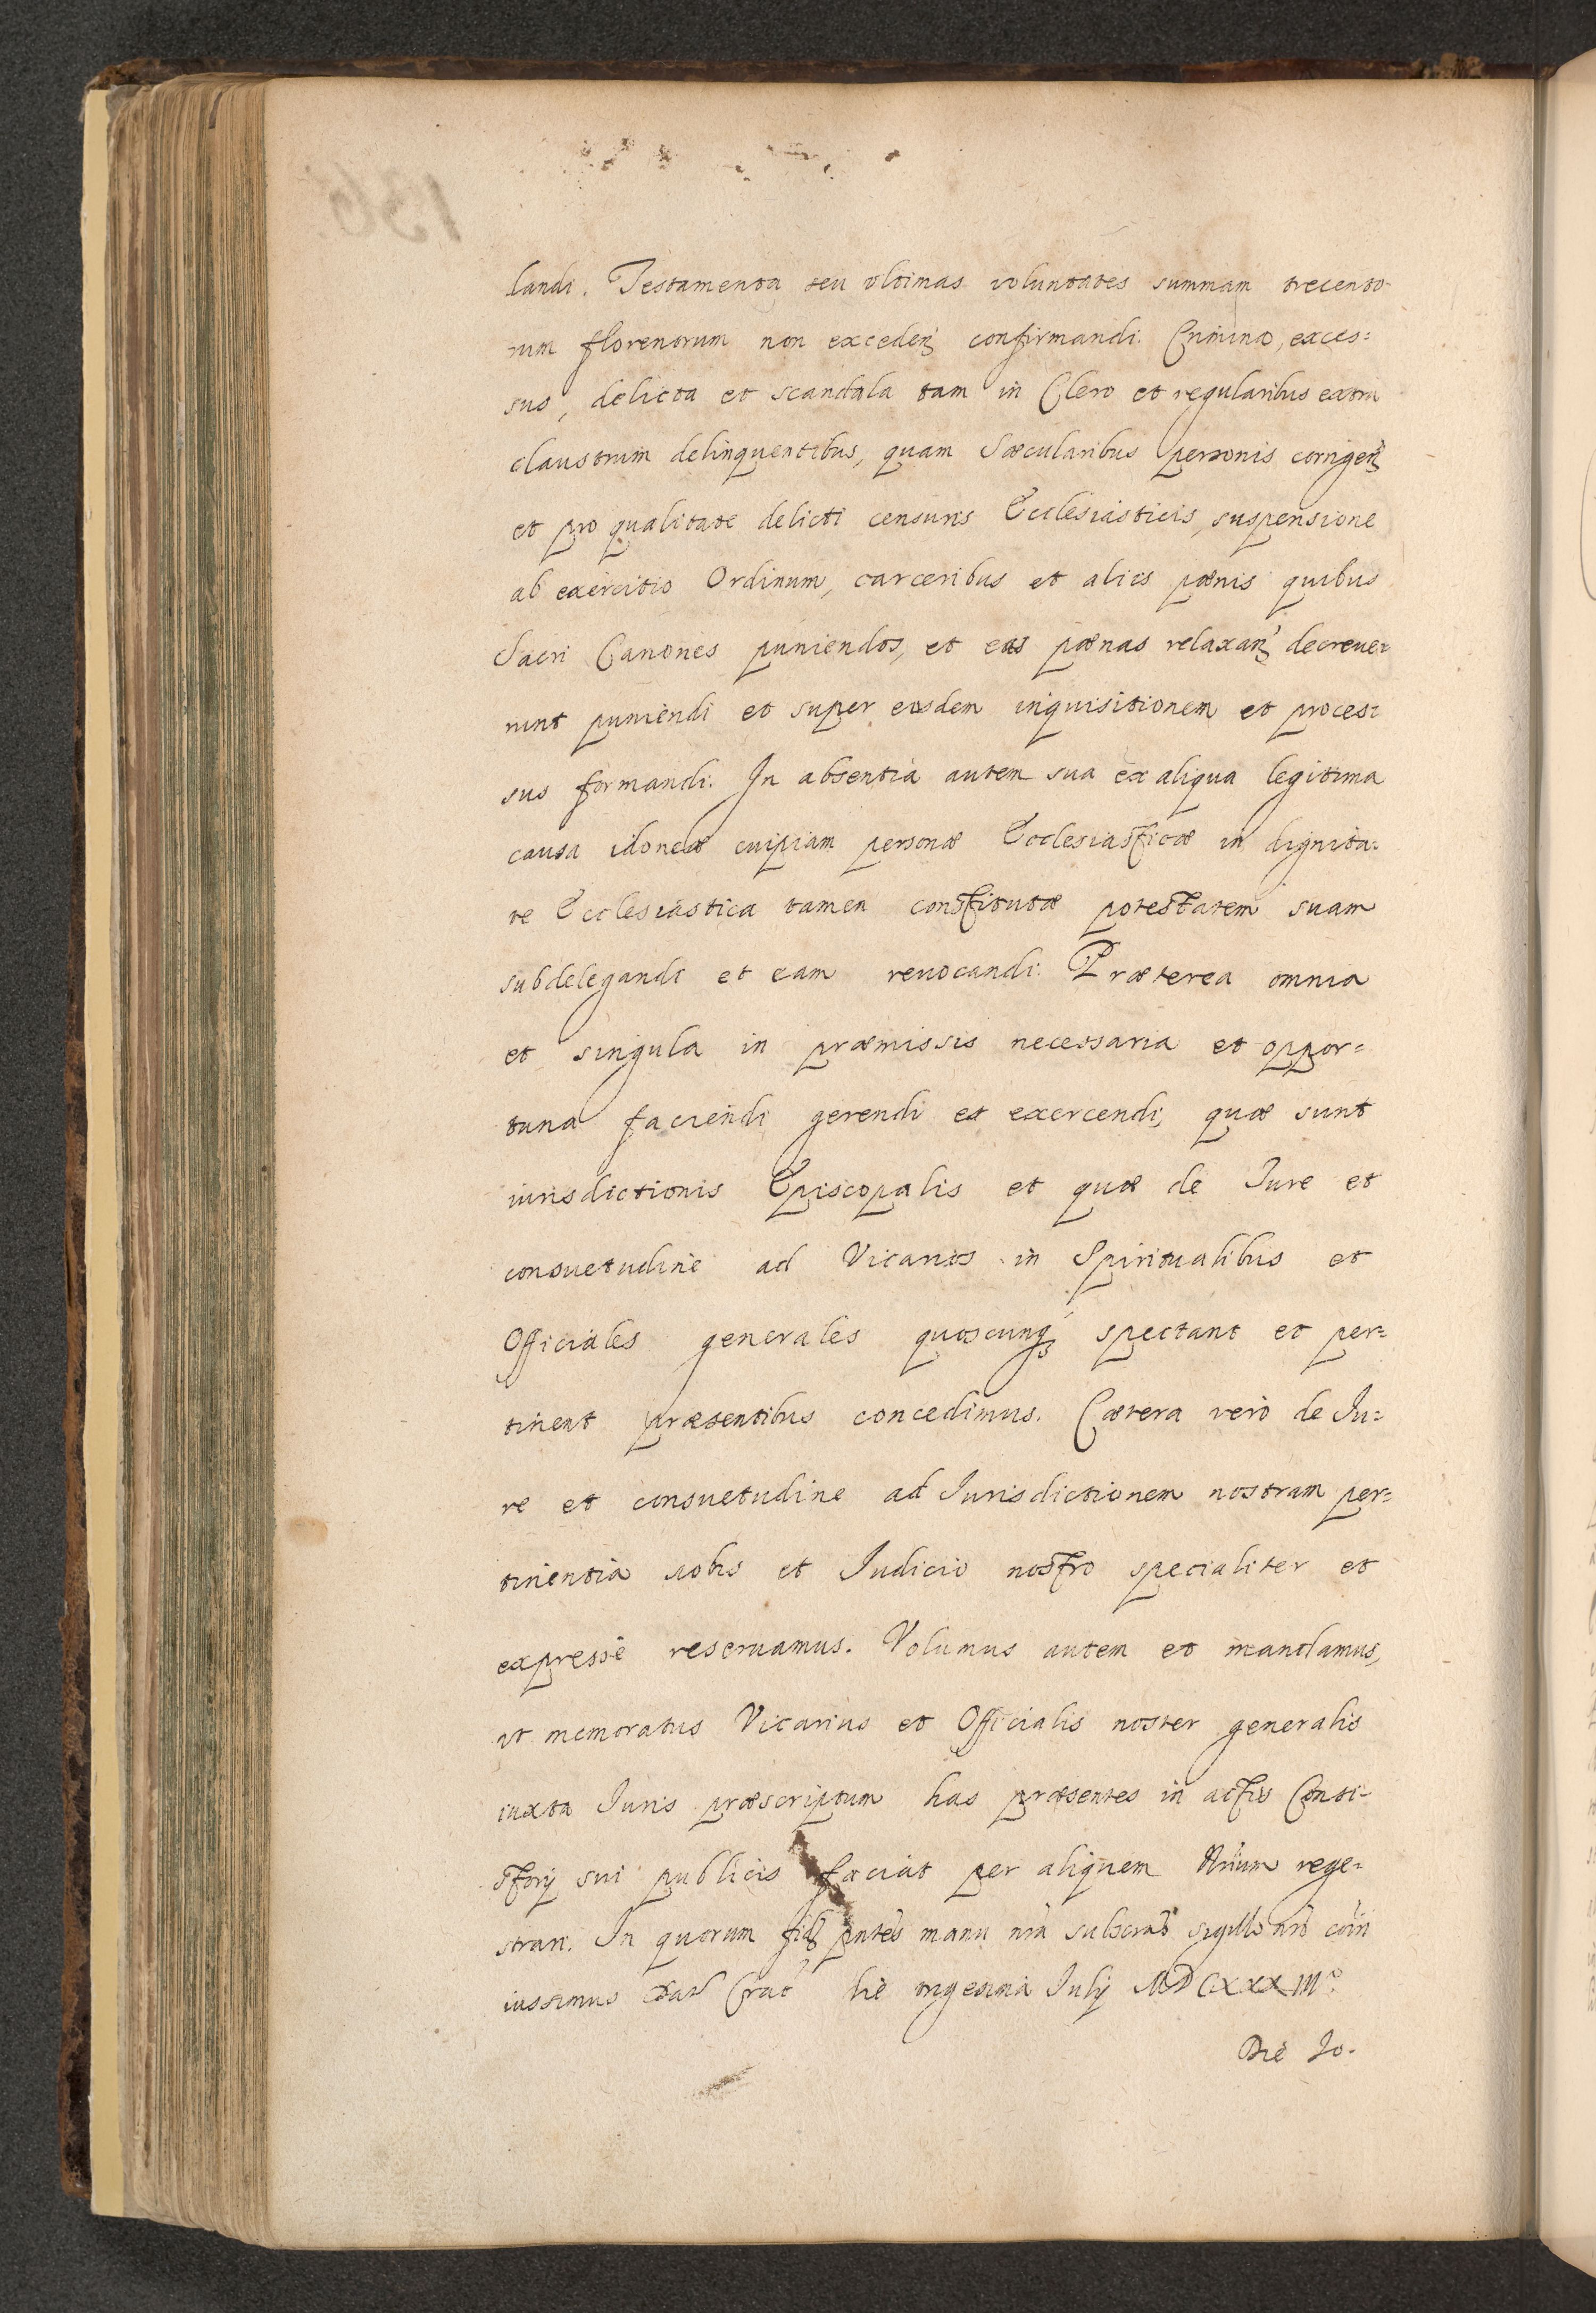 landi. Testamenta seu vltimas voluntates summam trecento-
rum florenorum non exceden confirmandi. Crimina, exces=
sus, delicta et scandala tam in Clero et regularibus extra
claustrum delinquentibus, quam Sæcularibus personis corrigen
et pro qualitate delicti censuris Ecclesiasticis, suspensione
ab exercitio Ordinum, carceribus et alijs pænis quibus
Sacri Canones puniendos, et eas pænas relaxan decreue=
runt puniendi et super eisdem inquisitionem et proces=
sus formandi. In absentia autem sua ex aliqua legitima
causa idoneæ cuipiam personæ Ecclesiasticæ in dignita=
te Ecclesiastica tamen constitutæ potestatem suam
subdelegandi et eam reuocandi. Præterea omnia
et singula in præmissis necessaria et oppor=
tuna faciendi gerendi et exercendi, quæ sunt
iurisdictionis Episcopalis et quæ de Jure et
consuetudine ad Vicarios in Spiritualibus et
Officiales generales quoscunq spectant et per=
tinent præsentibus concedimus. Cætera verò de Ju=
re et consuetudine ad Jurisdictionem nostram per=
tinentia nobis et Judicio nostro specialiter et
expressè reseruamus. Volumus autem et mandamus,
vt memoratus Vicarius et Officialis noster generalis
iuxta Juris præscriptum has præsentes in actis Consi-
storij sui publicis faciat per aliquem Nrium rege-
strari. In quorum fid pntes manu nra subscrab sigillo nro com
iussimus Dat Crac die vigesima Julij MDCXXXIII°
Die Jo.